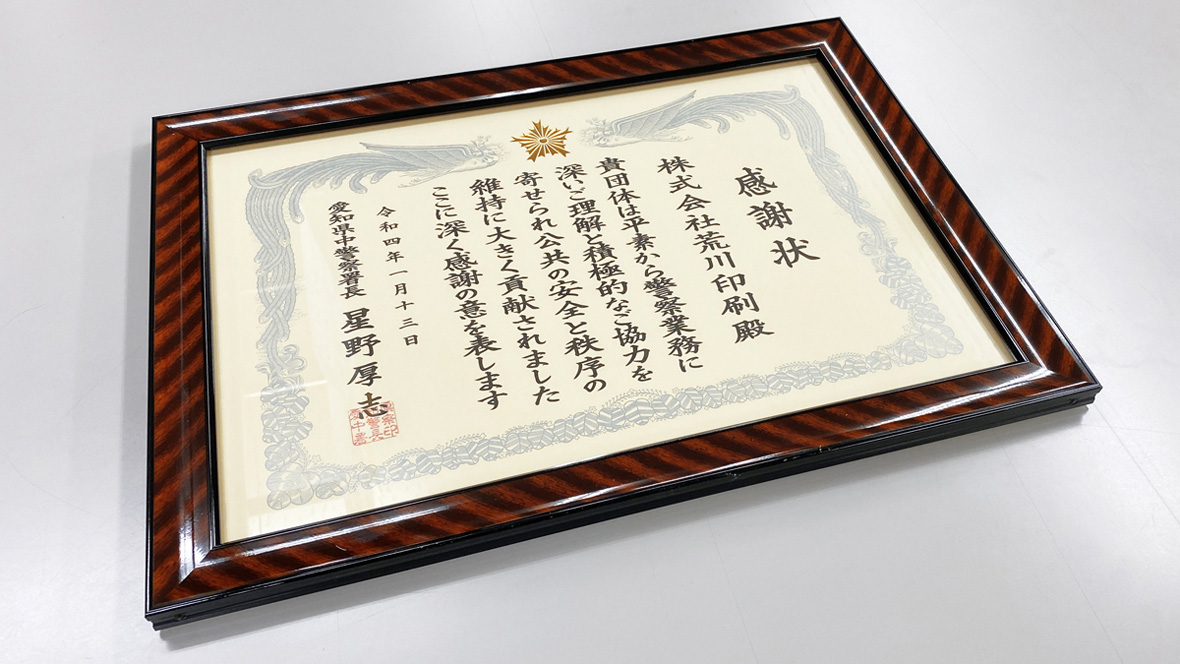 感謝状
株式会社荒川印刷殿
貴団体は平素から警察業務に
深いご理解と積極的なご協力を
寄せられ公共の安全と秩序の
維持に大きく貢献されました
ここに深く感謝の意を表します
令和四年一月十三日
愛知県中警察署長 星野厚志